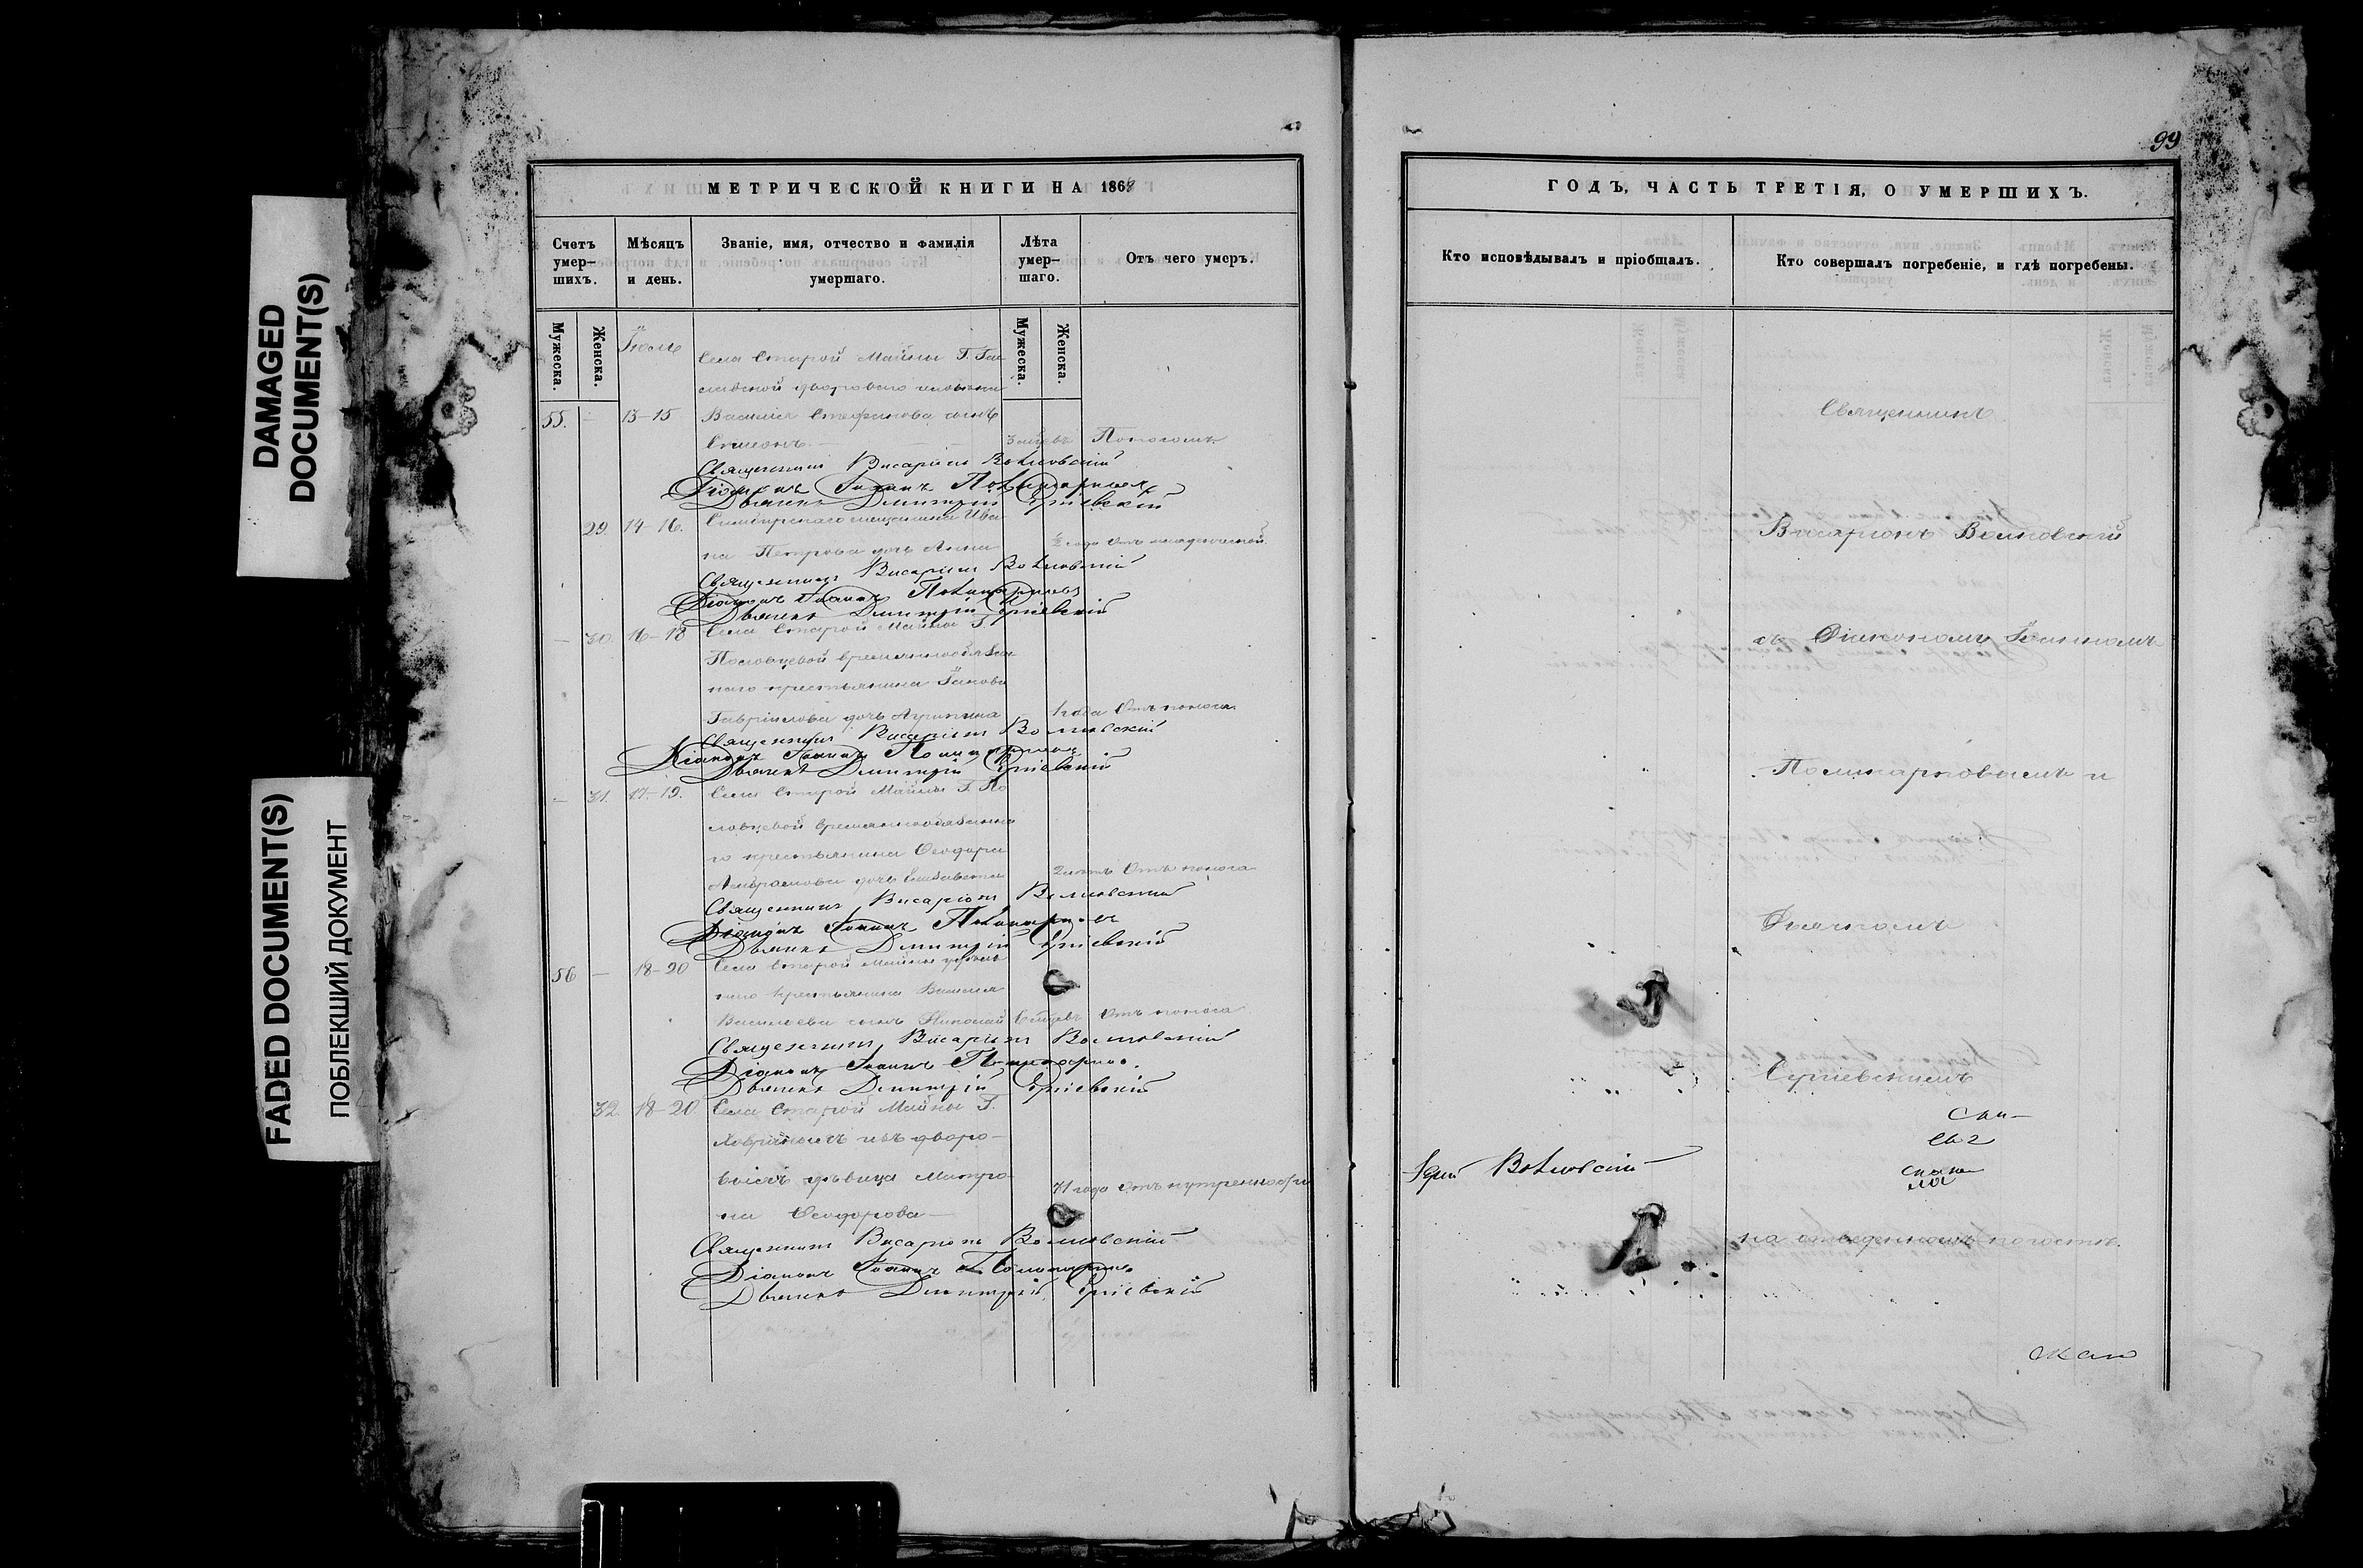 DAMAGED
DOCUMENT(S)
FADED DOCUMENT(S)
ПОБЛЕКШИЙ ДОКУМЕНТ
МЕТРИЧЕСКОЙ КНИГИ НА 1868
Счетъ умер-шихъ.
Мѣсяцъ и день.
Званіе, имя, отчество и фамилія умершаго.
Лѣта умер-шаго.
Отъ чего умеръ.
Мужеска.
Женска.
Мужеска.
Женска.
Іюль
Села Старой Майны Г.
славской двороваго человѣка
55. - 13-15 Василія Стефанова сынъ
Симеонъ. 3 мѣсяц. Поносомъ
Священникъ Висаріонъ Волковскій
Діаконъ Іоаннъ Поликарповъ
Дьячекъ Дмитрій Сергіевскій
29. 14-16. Симбирскаго мещанина Ива
на Петрова дочь Анна ½ года Отъ младенческой
Священникъ Висаріонъ Волковскій
Діаконъ Іоаннъ Поликарповъ
Дьячекъ Дмитрій Сергіевскій
- 30. 16-18 Села Старой Майны Г.
Половцевой временнообязан
наго крестьянина Іакова
Гавріилова дочь Агрипина 1 года Отъ поноса
Священникъ Висаріонъ Волковскій
Діаконъ Іоаннъ Поликарповъ
Дьячекъ Дмитрій Сергіевскій
- 31. 17-19. Села Старой Майны Г. По
ловцевой временнообязанна
го крестьянина Ѳеодора
дочь Елисавета 2 лѣтъ Отъ поноса
Священникъ Висаріонъ Волковскій
Діаконъ Іоаннъ Поликарповъ
Дьячекъ Дмитрій Сергіевскій
56 - 18-20 Села Старой Майны удѣль
наго крестьянина Василія
Васильева сынъ Николай 6 мѣсяцевъ Отъ поноса
Священникъ Висаріонъ Волковскій
Діаконъ Іоаннъ Поликарповъ
Дьячекъ Дмитрій Сергіевскій
32. 18-20 Села Старой Майны Г.
изъ дворо-
выхъ дѣвица Матро-
на Ѳеодорова 71 года Отъ
Священникъ Висаріонъ Волковскій
Діаконъ Іоаннъ Поликарповъ
Дьячекъ Дмитрій Сергіевскій
99
ГОДЪ, ЧАСТЬ ТРЕТІЯ, О УМЕРШИХЪ.
Кто исповѣдывалъ и пріобщалъ.
Кто совершалъ погребеніе, и гдѣ погребены.
Священникъ
Висаріонъ Волковскій
съ Діакономъ Іоанномъ
Поликарповымъ и
Дьячкомъ
Сергіевскимъ
Іерей Волковскій
на отведенномъ погостѣ.